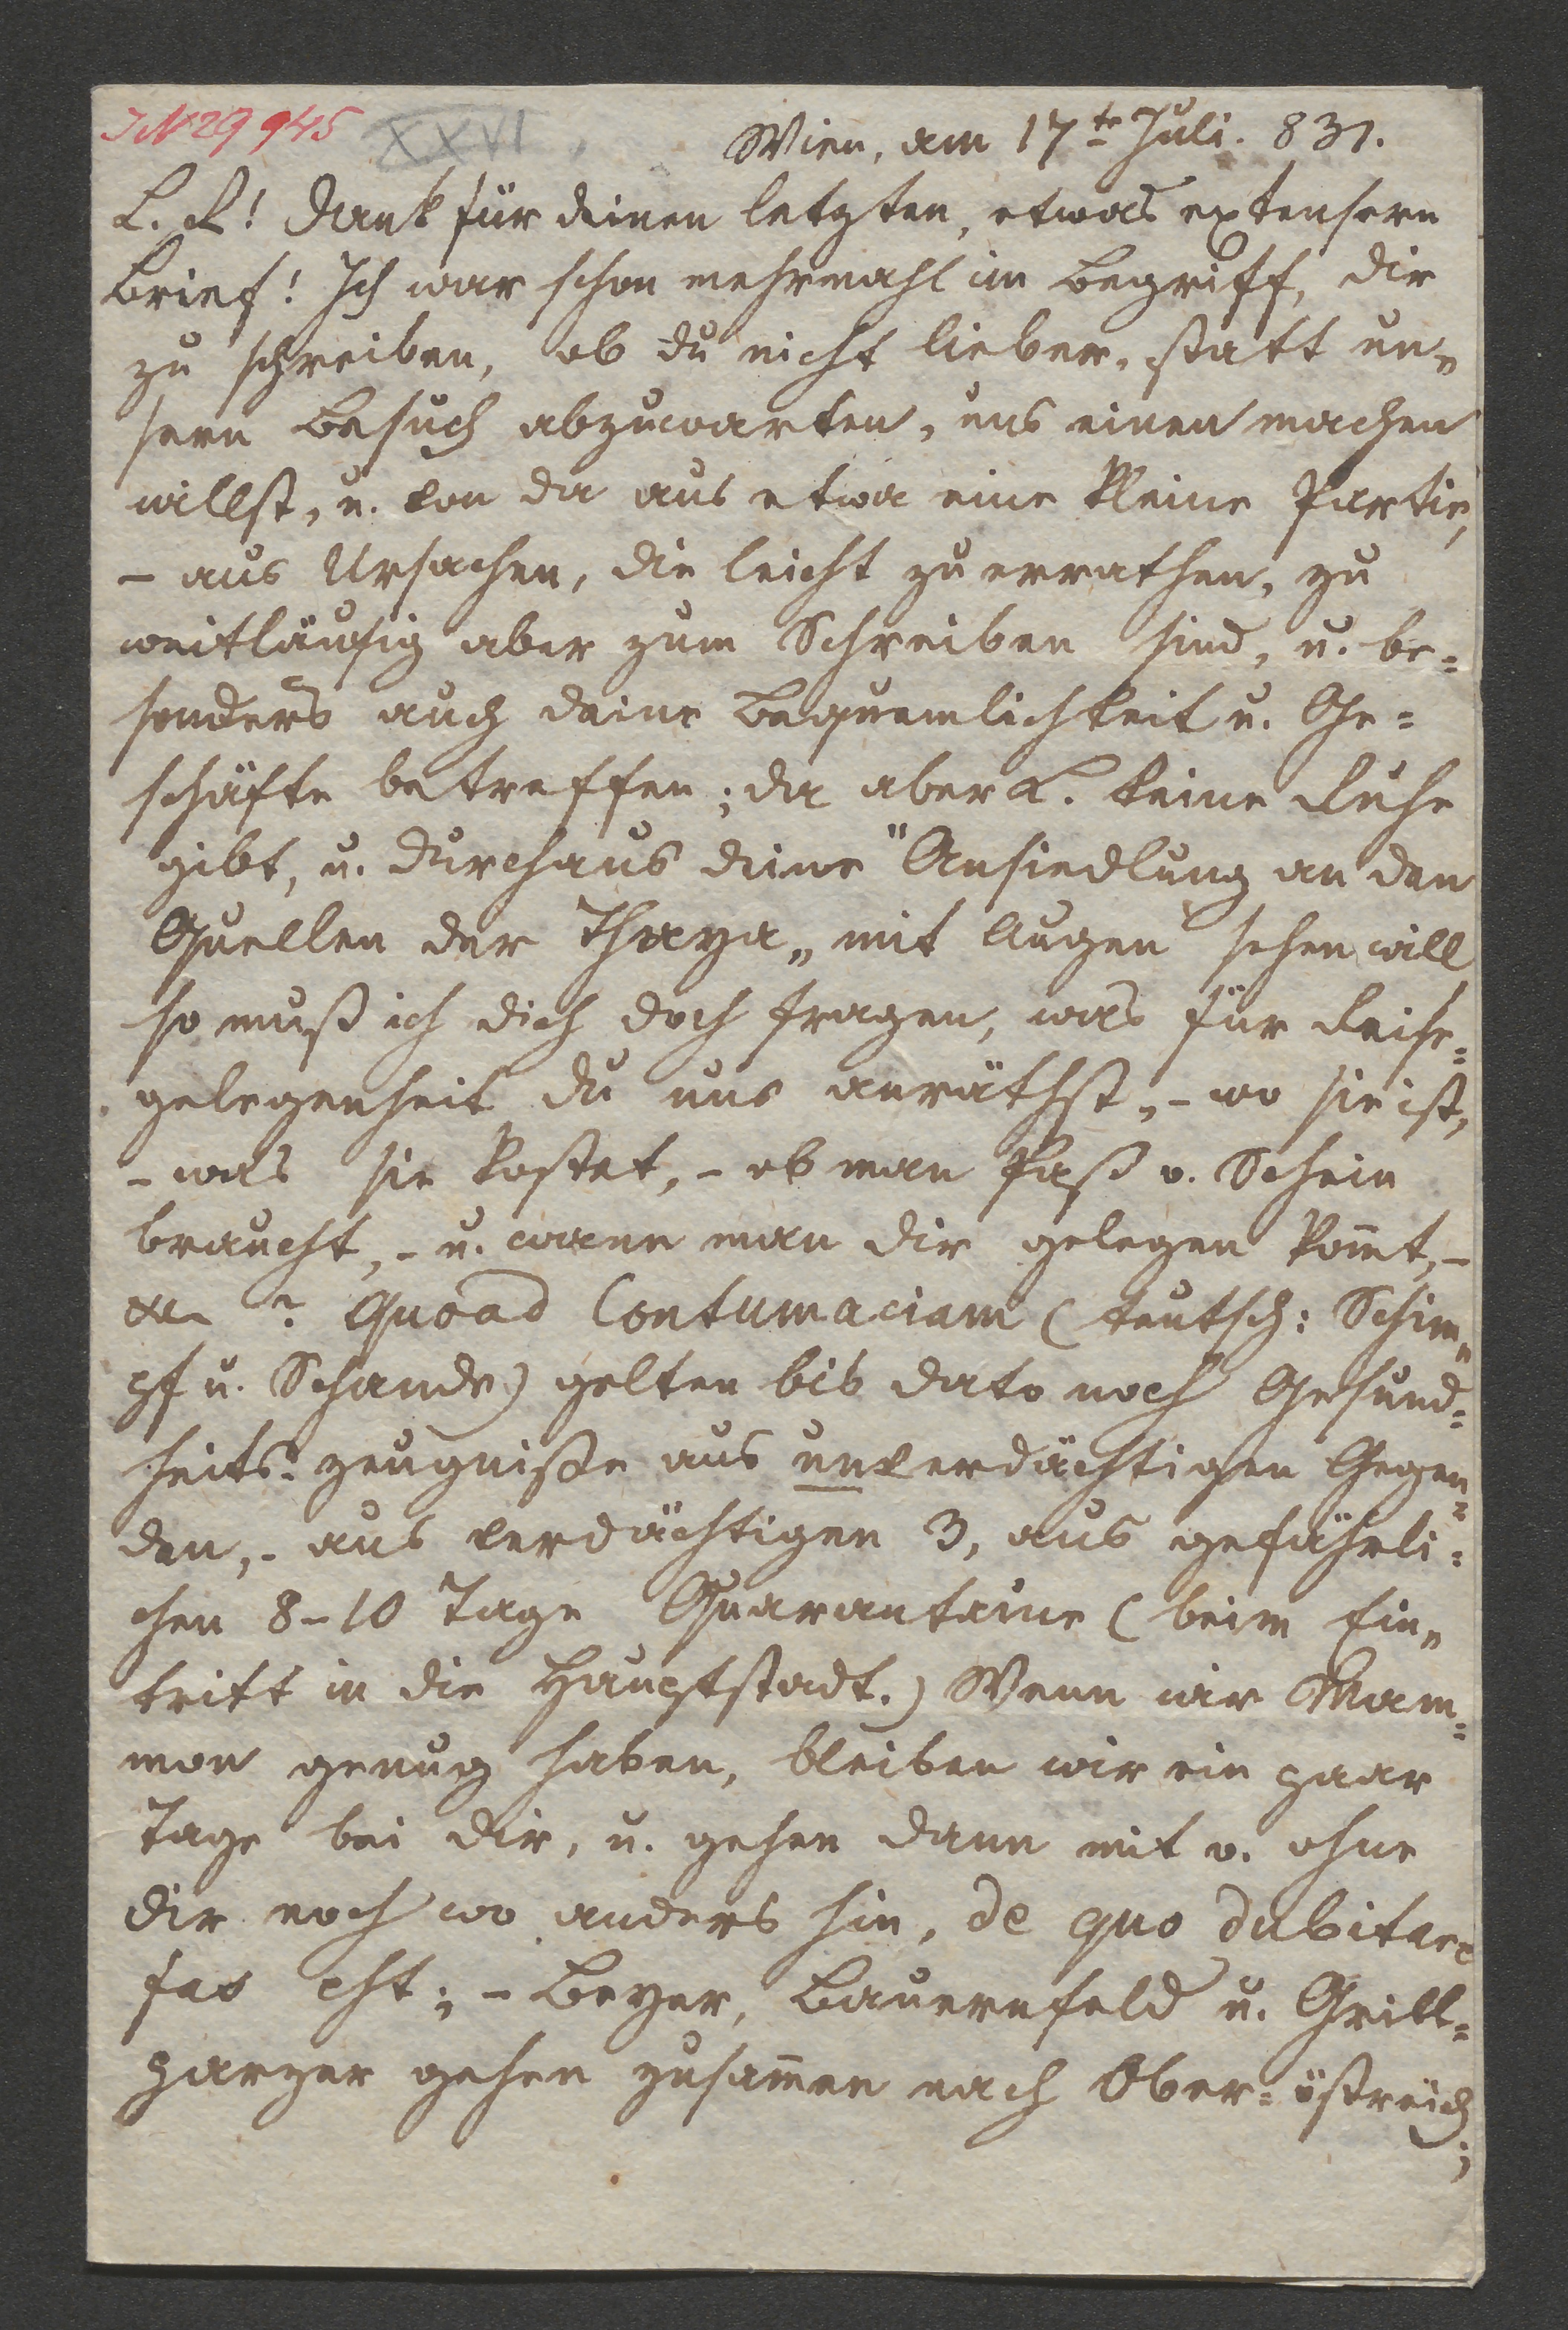 IN 29 945 XXVI
Wien, am 17te Juli. 831.
L. F! Dank für deinen letzten, etwas extensern
Brief! Ich war schon mehrmahl im Begriff, dir
zu schreiben, ob du nicht lieber, statt un„
sern Besuch abzuwarten, uns einen machen
willst, u. von da aus etwa eine kleine Partie,
– aus Ursachen, die leicht zu errathen, zu
weitläufig aber zum Schreiben sind, u. be=
sonders auch deine Bequemlichkeit u. Ge=
schäfte betreffen; da aber L. keine Ruhe
gibt, u. durchaus deine "Ansiedlung an den
Quellen der Thaya„ mit Augen sehen will
so muß ich dich doch fragen, was für Reise=
gelegenheit du uns anräthst, – wo sie ist,
– was sie kostet, – ob man Paß o. Schein
braucht, – u. wann man dir gelegen kom̄t, –
etc ? Quoad Contumaciam (teutsch: Schim„
pf u. Schande) gelten bis dato noch Gesund=
heits-zeugniße aus unverdächtigen Gegen=
den, – aus verdächtigen 3, aus gefährli=
chen 8–10 Tage Quarantaine (beim Ein„
tritt in die Hauptstadt.) Wenn wir Mam=
mon genug haben, bleiben wir ein paar
Tage bei dir, u. gehen dann mit o. ohne
dir noch wo anders hin, de quo dubitare
fas est; – Beyer, Bauernfeld u. Grill=
parzer gehen zusam̄en nach Ober-östreich;